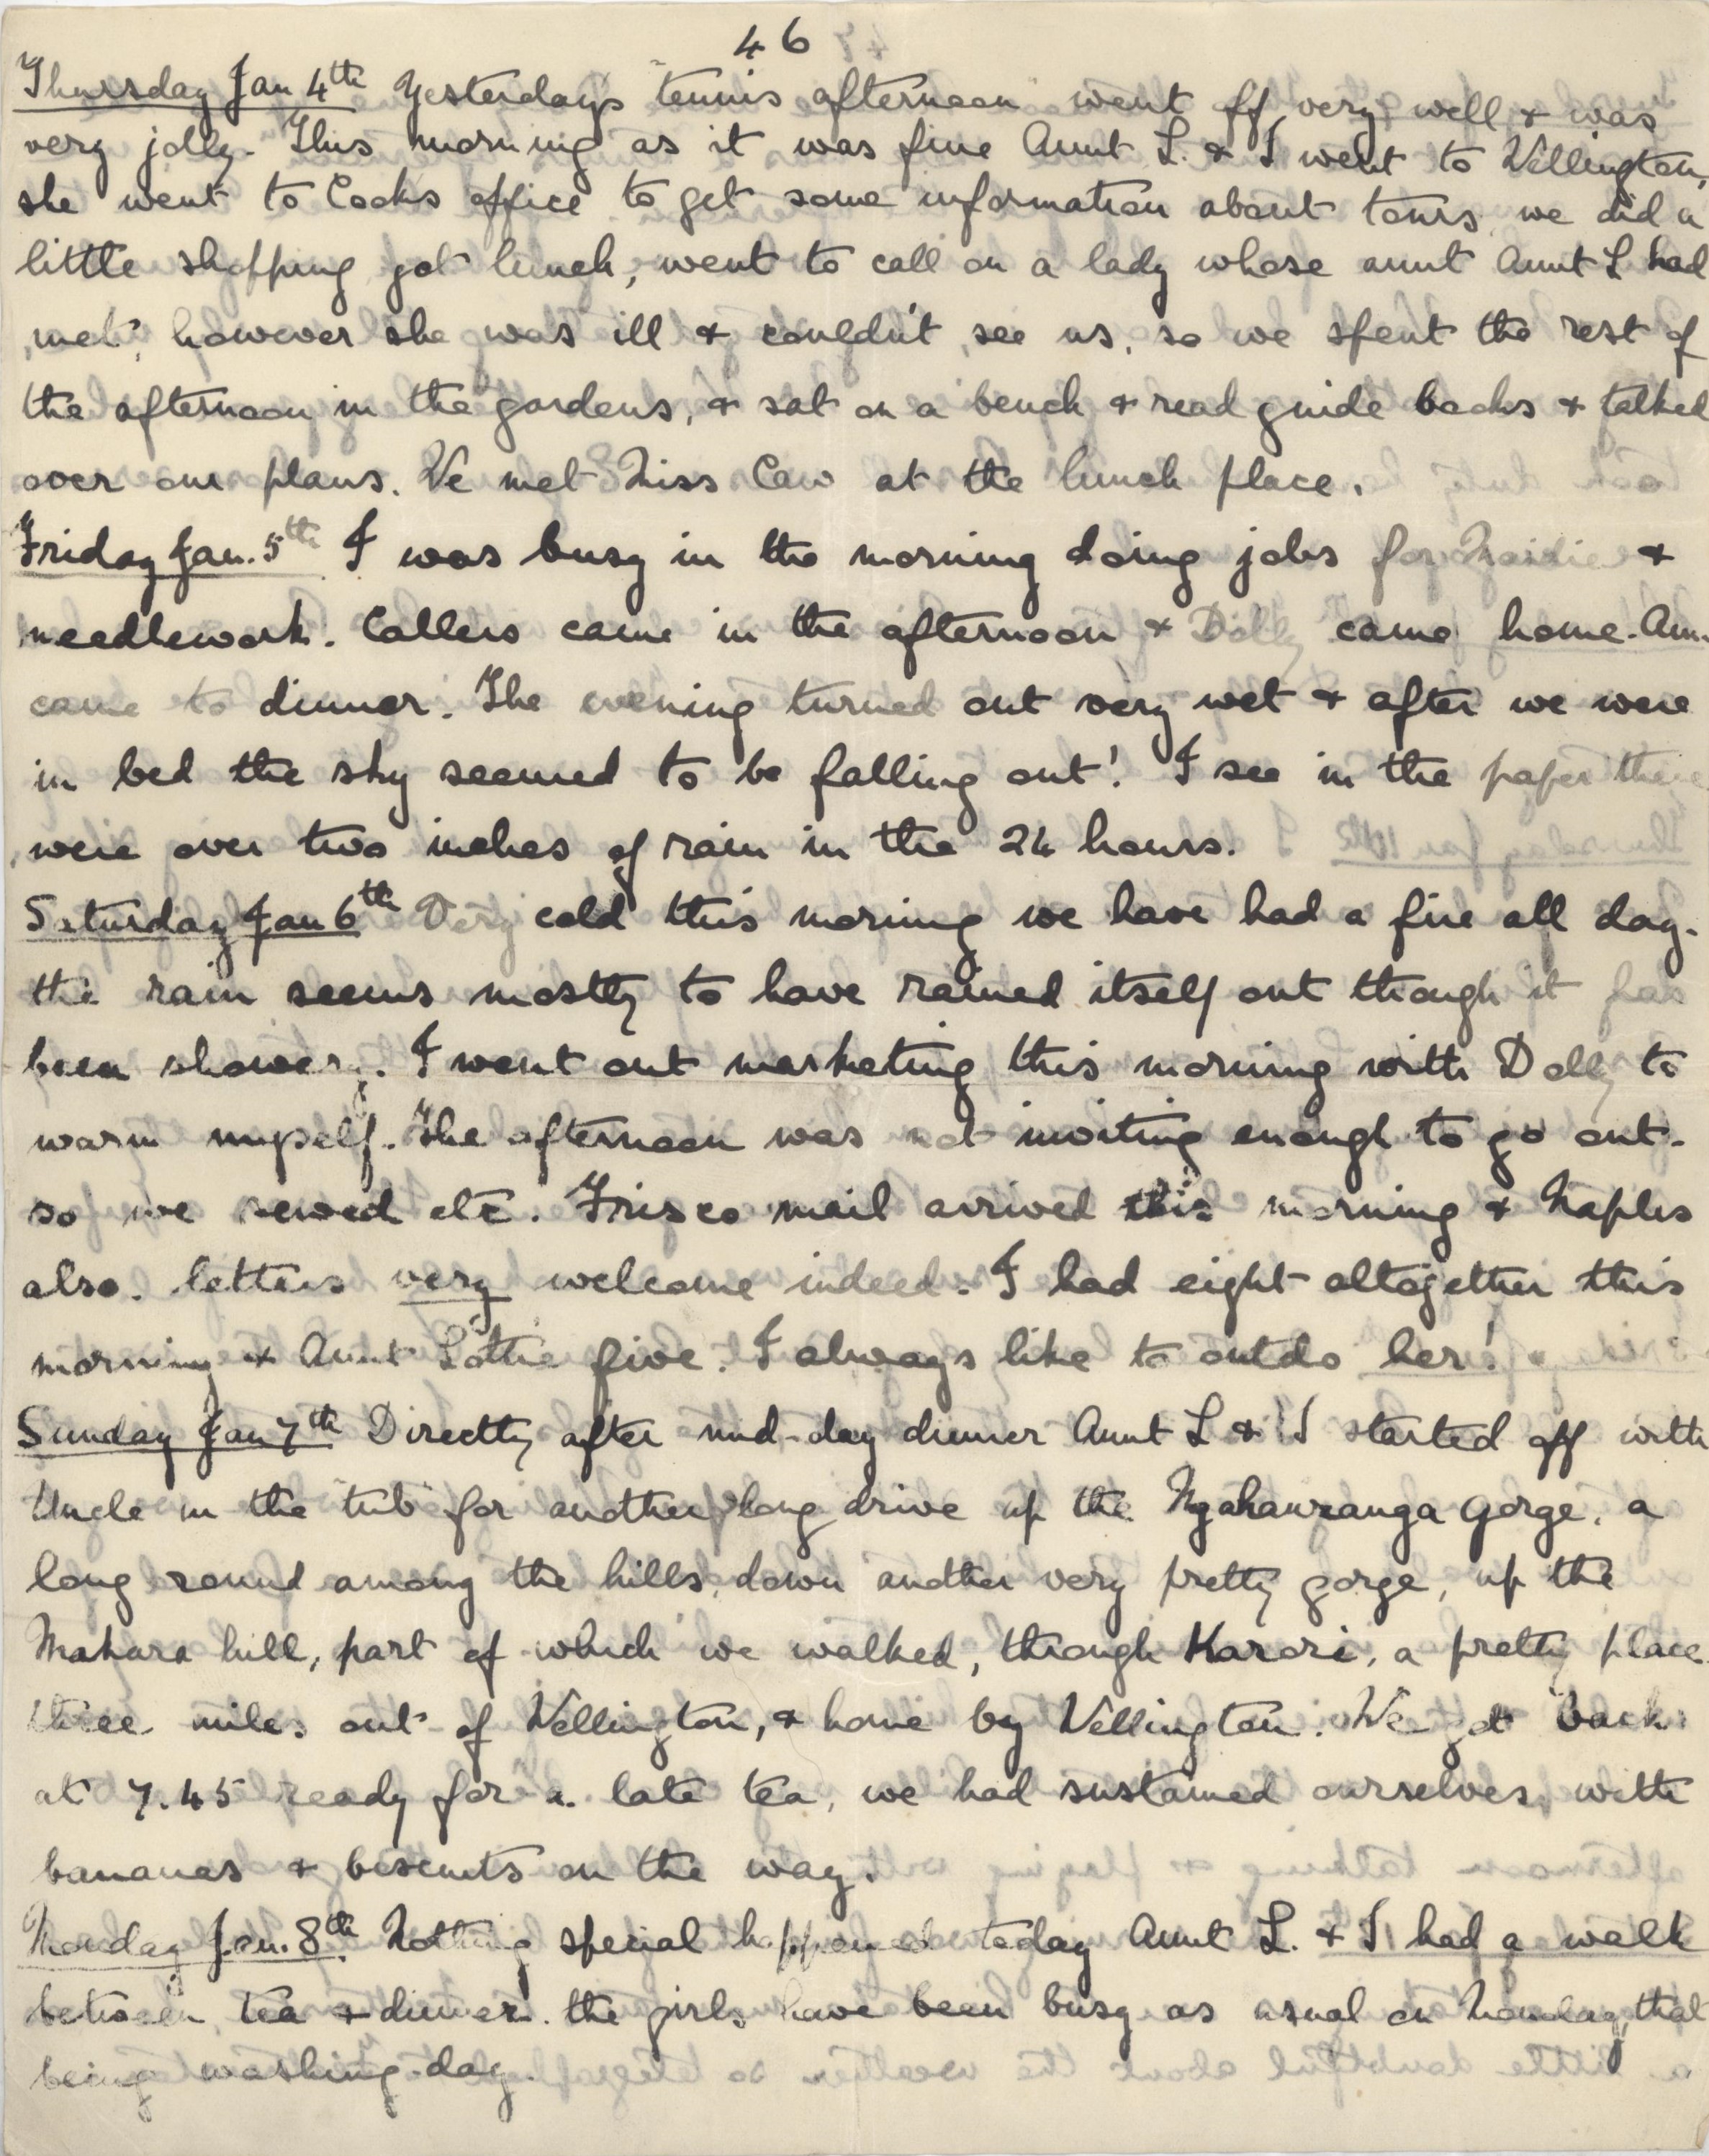 46
Thursday Jan 4th Yesterdays tennis afternoon went off very well & was
very jolly. This morning as it was fine Aunt L. & I went to Wellington,
she went to Cooks office to get some information about tours, we did a
little shopping got lunch, went to call on a lady whose aunt Aunt L had
met, however she was ill & couldn't see us, so we spent the rest of
the afternoon in the gardens, & sat on a bench & read guide books & talked
over our plans. We met Miss Caw at the lunch place.
Friday Jan. 5th I was busy in the morning doing jobs for Maidie &
needlework. Callers came in the afternoon & Dolly came home.
came to dinner. The evening turned out very wet & after we were
in bed the sky seemed to be falling out! I see in the paper there
were over two inches of rain in the 24 hours.
Saturday Jan 6th Very cold this morning we have had a fire all day.
the rain seems mostly to have rained itself out though it has
been showery. I went out marketing this morning with Dolly to
warm myself. The afternoon was not inviting enough to go out.
so we sewed etc. Frisco mail arrived this morning & Naples
also. letters very welcome indeed. I had eight altogether this
morning & Aunt Lottie five. I always like to outdo her!
Sunday Jan 7th Directly after mid-day dinner Aunt L & I started off with
Uncle in the tub for another long drive up the Ngahauranga Gorge, a
long round among the hills, down another very pretty gorge, up the
Makara hill, part of which we walked, through Karori, a pretty place
three miles out of Wellington, & home by Wellington. We got back
at 7.45 ready for a late tea, we had sustained ourselves with
bananas & biscuits on the way.
Monday Jan. 8th Nothing special happened today Aunt L. & I had a walk
between tea & dinner. the girls have been busy as usual on Monday, that
being washing-day.